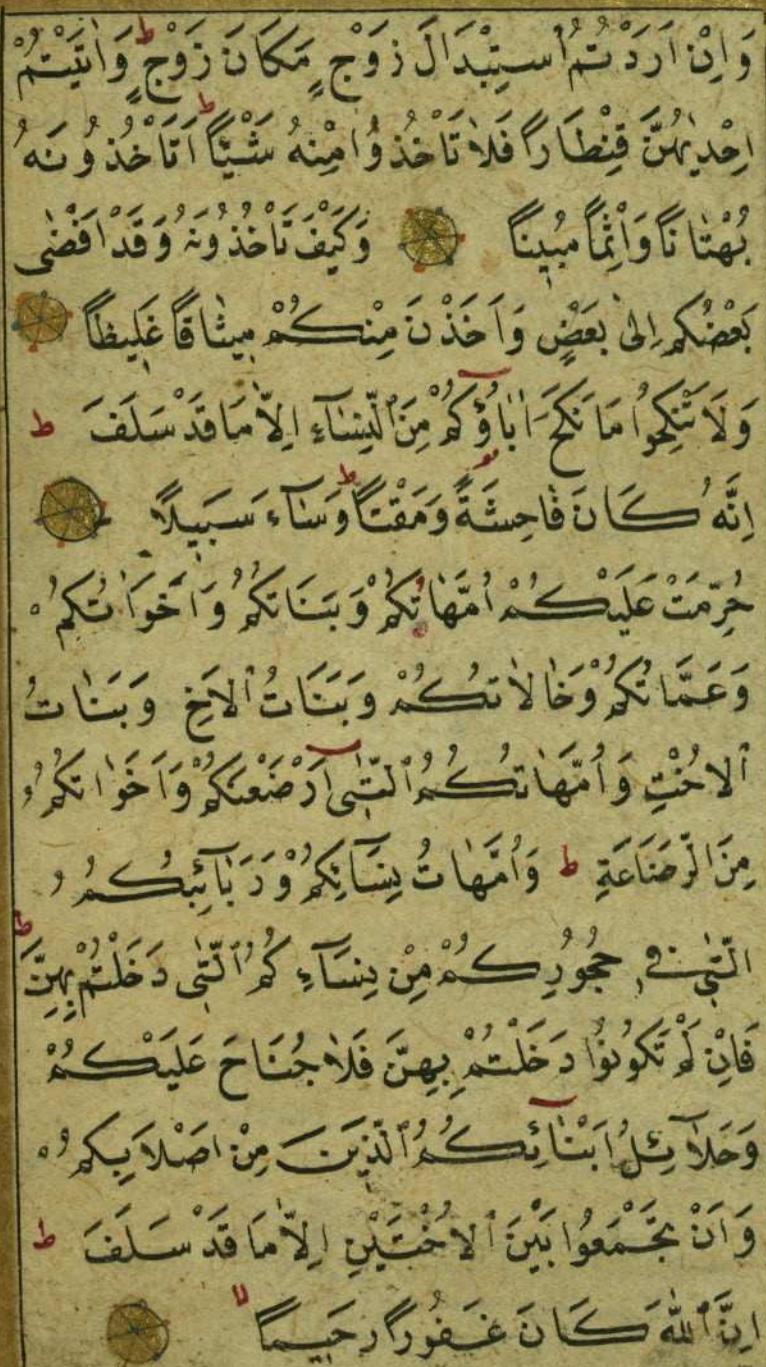 وَاِنْ اَرَدْتُمُ اسْتِبْدَالَ زَوْجٍ مَكَانَ زَوْجٍ ط وَاٰتَيْتُمْ
اِحْدٰيهُنَّ قِنْطَارًا فَلَا تَاْخُذُوا مِنْهُ شَيْئًا ط اَتَاْخُذُونَهُ
بُهْتَانًا وَاِثْمًا مُبِينًا وَكَيْفَ تَاْخُذُونَهُ وَقَدْ اَفْضٰى
بَعْضُكُمْ اِلٰى بَعْضٍ وَاَخَذْنَ مِنْكُمْ مِيثَاقًا غَلِيظًا
وَلَا تَنْكِحُوا مَا نَكَحَ اٰبَاؤُكُمْ مِنَ النِّسَاءِ اِلَّا مَا قَدْ سَلَفَ ط
اِنَّهُ كَانَ فَاحِشَةً وَمَقْتًا ط وَسَاءَ سَبِيلًا
حُرِّمَتْ عَلَيْكُمْ اُمَّهَاتُكُمْ وَبَنَاتُكُمْ وَاَخَوَاتُكُمْ
وَعَمَّاتُكُمْ وَخَالَاتُكُمْ وَبَنَاتُ الْاَخِ وَبَنَاتُ
الْاُخْتِ وَاُمَّهَاتُكُمُ الّٰتٖى اَرْضَعْنَكُمْ وَاَخَوَاتُكُمْ
مِنَ الرَّضَاعَةِ ط وَاُمَّهَاتُ نِسَائِكُمْ وَرَبَائِبُكُمُ
الّٰتٖى فٖى حُجُورِكُمْ مِنْ نِسَاءِكُمُ الّٰتٖى دَخَلْتُمْ بِهِنَّ ط
فَاِنْ لَمْ تَكُونُوا دَخَلْتُمْ بِهِنَّ فَلَا جُنَاحَ عَلَيْكُمْ
وَحَلَائِلُ اَبْنَائِكُمُ الَّذِينَ مِنْ اَصْلَابِكُمْ
وَاَنْ تَجْمَعُوا بَيْنَ الْاُخْتَيْنِ اِلَّا مَا قَدْ سَلَفَ ط
اِنَّ اللّٰهَ كَانَ غَفُورًا رَحِيمًا